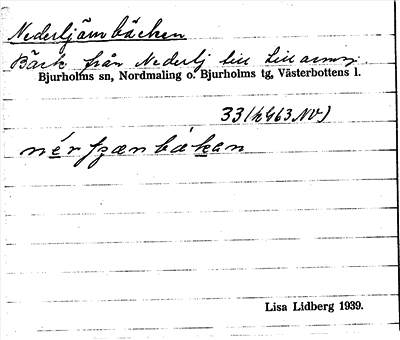 Nederljärnbäcken
Bäck från Nederlj till Lill
Bjurholms sn, Nordmaling o. Bjurholms tg, Västerbottens l.
33 (h 463 NV)
nérfzænbækan
Lisa Lidberg 1939.